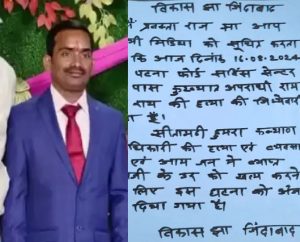 विकास झा जिंदाबाद
मैं प्रवक्ता राज झा आप
मिडिया को सुचित करता
कि आज दिनांक 16-08-2024
पटना फोर्ड सर्विस सेन्टर
पास कुख्यात अपराधी राम
राय की हत्या की जिम्मेदा
ता है।
सीतामरी डुमरा कल्याण
धिकारी की हत्या एवं व्यवसा
एवं आम जन में व्याप्त
के डर को खत्म करने
लिए इस घटना को अंज
दिया गया है।
विकास झा जिंदाबाद